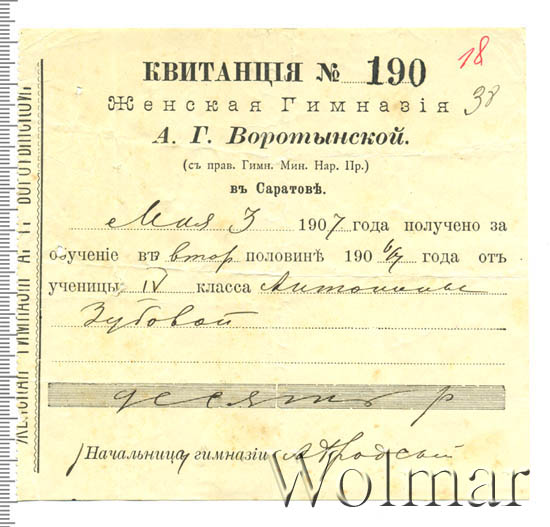 18
КВИТАНЦІЯ № 190
Женская Гимназія 38
А. Г. Воротынской.
(съ прав. Гимн. Мин. Нар. Пр.)
въ Саратовѣ.
Мая 3 1907 года получено за
обученіе въ втор половинѣ 190 6/7 года отъ
ученицы IV класса Антонины
Зубовой
десять р
Начальница гимназіи
Wolmar
ЖЕНСКАЯ ГИМНАЗІЯ А. Г. ВОРОТЫНСКОЙ